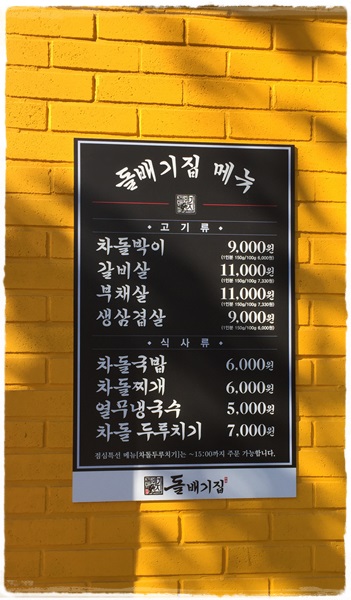 돌배기집 메뉴
고기류
차돌박이 9,000원
(1인분 150g/100g 6,000원)
갈비살 11,000원
(1인분 150g/100g 7,330원)
부채살 11,000원
(1인분 150g/100g 7,330원)
생삼겹살 9,000원
(1인분 150g/100g 6,000원)
식사류
차돌국밥 6.000원
차돌찌개 6,000원
열무냉국수 5.000원
차돌 두루치기 7.000원
점심특선 메뉴[차돌두루치기]는 ~15:00까지 주문 가능합니다.
돌배기집